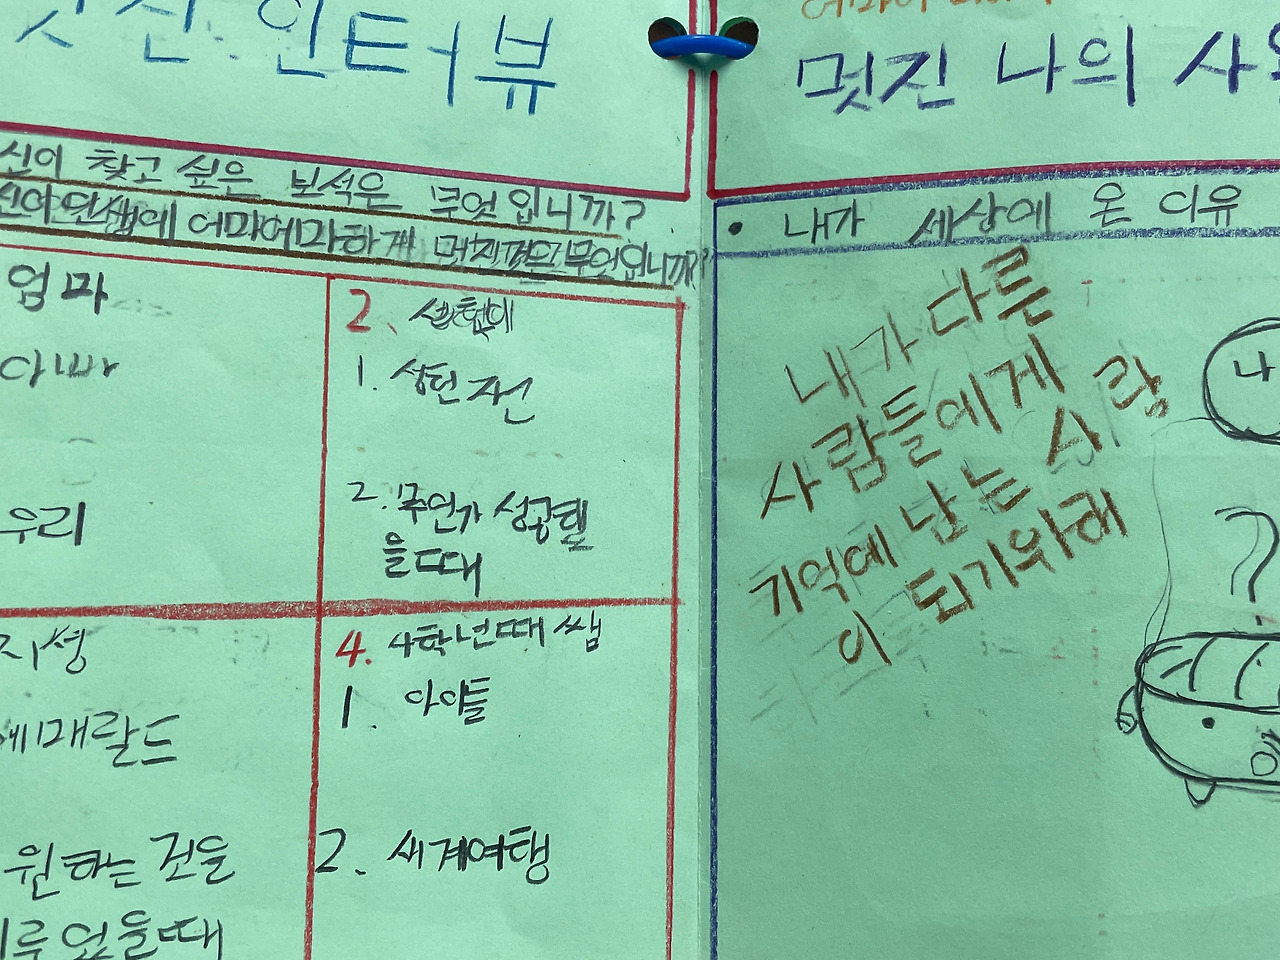 멋진 인터뷰
신이 찾고 싶은 보석은 무엇입니까?
신이 인생에 어마어마하게 멋진것은 무엇입니까?
엄마
아빠
우리
2.
1. 상현 자신
2. 주언가 성공했
을때
지셩
에매랄드
원하는 것을
이루었을때
4. 4학년때 쌤
1. 아이들
2. 세계여행
멋진 나의 사
• 내가 세상에 온 이유
내가 다른
사람들에게
기억에 남는 사람
이 되기위해
나
?